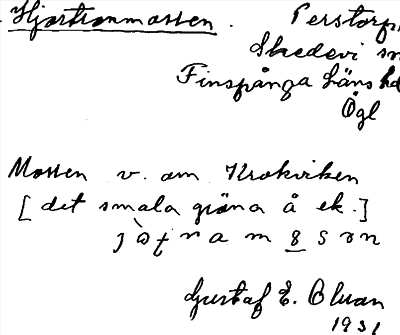 Hjortronmossen. Perstorp
Skedevi sn
Finspånga läns hd
Ögl
Mossen v. om Krokviken
[det smala gröna å ek.]
Gustaf E. Olsson
1931